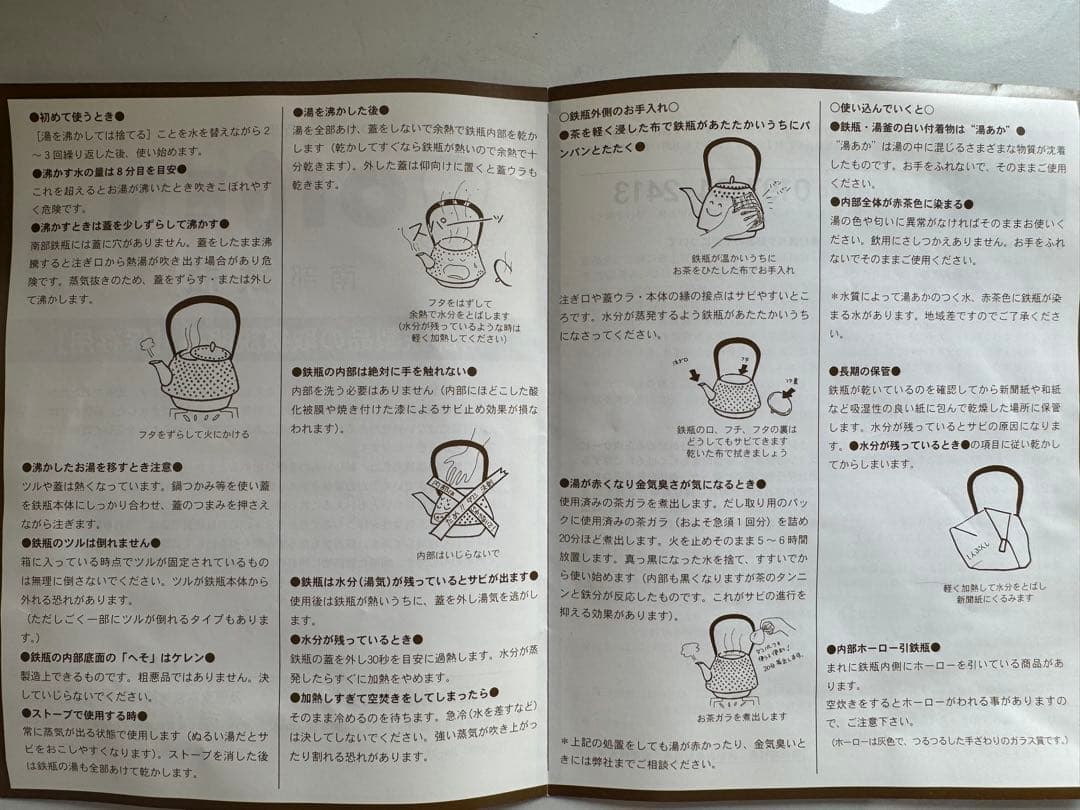 ●初めて使うとき●
［湯を沸かしては捨てる］ことを水を替えながら２
～３回繰り返した後、使い始めます。
●沸かす水の量は８分目を目安●
これを超えるとお湯が沸いたとき吹きこぼれやす
く危険です。
●沸かすときは蓋を少しずらして沸かす●
南部鉄瓶には蓋に穴がありません。蓋をしたまま沸
騰すると注ぎ口から熱湯が吹き出す場合があり危
険です。蒸気抜きのため、蓋をずらす・または外し
て沸かします。
フタをずらして火にかける
●沸かしたお湯を移すとき注意●
ツルや蓋は熱くなっています。鍋つかみ等を使い蓋
を鉄瓶本体にしっかり合わせ、蓋のつまみを押さえ
ながら注ぎます。
●鉄瓶のツルは倒れません●
箱に入っている時点でツルが固定されているもの
は無理に倒さないでください。ツルが鉄瓶本体から
外れる恐れがあります。
（ただしごく一部にツルが倒れるタイプもありま
す。）
●鉄瓶の内部底面の「へそ」はケレン●
製造上できるものです。粗悪品ではありません。決
していじらないでください。
●ストーブで使用する時●
常に蒸気が出る状態で使用します（ぬるい湯だとサ
ビをおこしやすくなります）。ストーブを消した後
は鉄瓶の湯も全部あけて乾かします。
●湯を沸かした後●
湯を全部あけ、蓋をしないで余熱で鉄瓶内部を乾か
します（乾かしてすくなら鉄瓶が熱いので余熱で十
分乾きます）。外した蓋は仰向けに置くと蓋ウラも
乾きます。
スパーッ
フタをはずして
余熱で水分をとばします
（水分が残っているような時は
軽く加熱してください）
●鉄瓶の内部は絶対に手を触れない●
内部を洗う必要はありません（内部にほどこした酸
化被膜や焼き付けた漆によるサビ止め効果が損な
われます）。
内部はいじらないで
●鉄瓶は水分（湯気）が残っているとサビが出ます●
使用後は鉄瓶が熱いうちに、蓋を外し湯気を逃がし
ます。
●水分が残っているとき●
鉄瓶の蓋を外し30秒を目安に過熱します。水分が蒸
発したらすぐに加熱をやめます。
●加熱しすぎて空焚きをしてしまったら●
そのまま冷めるのを待ちます。急冷（水を差すなど）
は決してしないでください。強い蒸気が吹き上がっ
たり割れる恐れがあります。
○鉄瓶外側のお手入れ○
●茶を軽く浸した布で鉄瓶があたたかいうちにパ
ンパンとたたく●
鉄瓶が温かいうちに
お茶をひたした布でお手入れ
注ぎ口や蓋ウラ・本体の縁の接点はサビやすいとこ
ろです。水分が蒸発するよう鉄瓶があたたかいうち
になさってください。
フタ
鉄瓶の口、フチ、フタの裏は
どうしてもサビてきます
乾いた布で拭きましょう
●湯が赤くなり金気臭さが気になるとき●
使用済みの茶ガラを煮出します。だし取り用のパッ
クに使用済みの茶ガラ（およそ急須１回分）を詰め
20分ほど煮出します。火を止めそのまま５～６時間
放置します。真っ黒になった水を捨て、すすいでか
ら使い始めます（内部も黒くなりますが茶のタンニ
ンと鉄分が反応したものです。これがサビの進行を
抑える効果があります）。
お茶ガラを煮出します
＊上記の処置をしても湯が赤かったり、金気臭いと
きには弊社までご相談ください。
○使い込んでいくと○
●鉄瓶・湯釜の白い付着物は“湯あか”●
“湯あか”は湯の中に混じるさまざまな物質が沈着
したものです。お手をふれないで、そのままご使用
ください。
●内部全体が赤茶色に染まる●
湯の色や匂いに異常がなければそのままお使いく
ださい。飲用にさしつかえありません。お手をふれ
ないでそのままご使用ください。
＊水質によって湯あかのつく水、赤茶色に鉄瓶が染
まる水があります。地域差ですのでご了承くださ
い。
●長期の保管●
鉄瓶が乾いているのを確認してから新聞紙や和紙
など吸湿性の良い紙に包んで乾燥した場所に保管
します。水分が残っているとサビの原因になりま
す。●水分が残っているとき●の項目に従い乾かし
てからしまいます。
軽く加熱して水分をとばし
新聞紙にくるみます
●内部ホーロー引鉄瓶●
まれに鉄瓶内側にホーローを引いている商品があ
ります。
空炊きをするとホーローがわれる事がありますの
で、ご注意下さい。
（ホーローは灰色で、つるつるした手ざわりのガラス質です。）